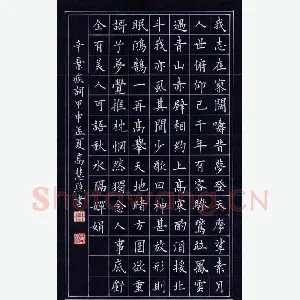 我志在寥闊疇昔夢登天摩挲素月
人世俯仰已千年有客驂鸞並鳳雲
遇青山赤壁相約上高寒酌酒援北
斗我亦虱其間少歌曰神甚放形則
眠鴻鵠一再高舉天地睹方圓欲重
歌兮夢覺推枕惘然獨念人事底虧
全有美人可語秋水隔嬋娟
辛棄疾詞甲申孟夏高慧書